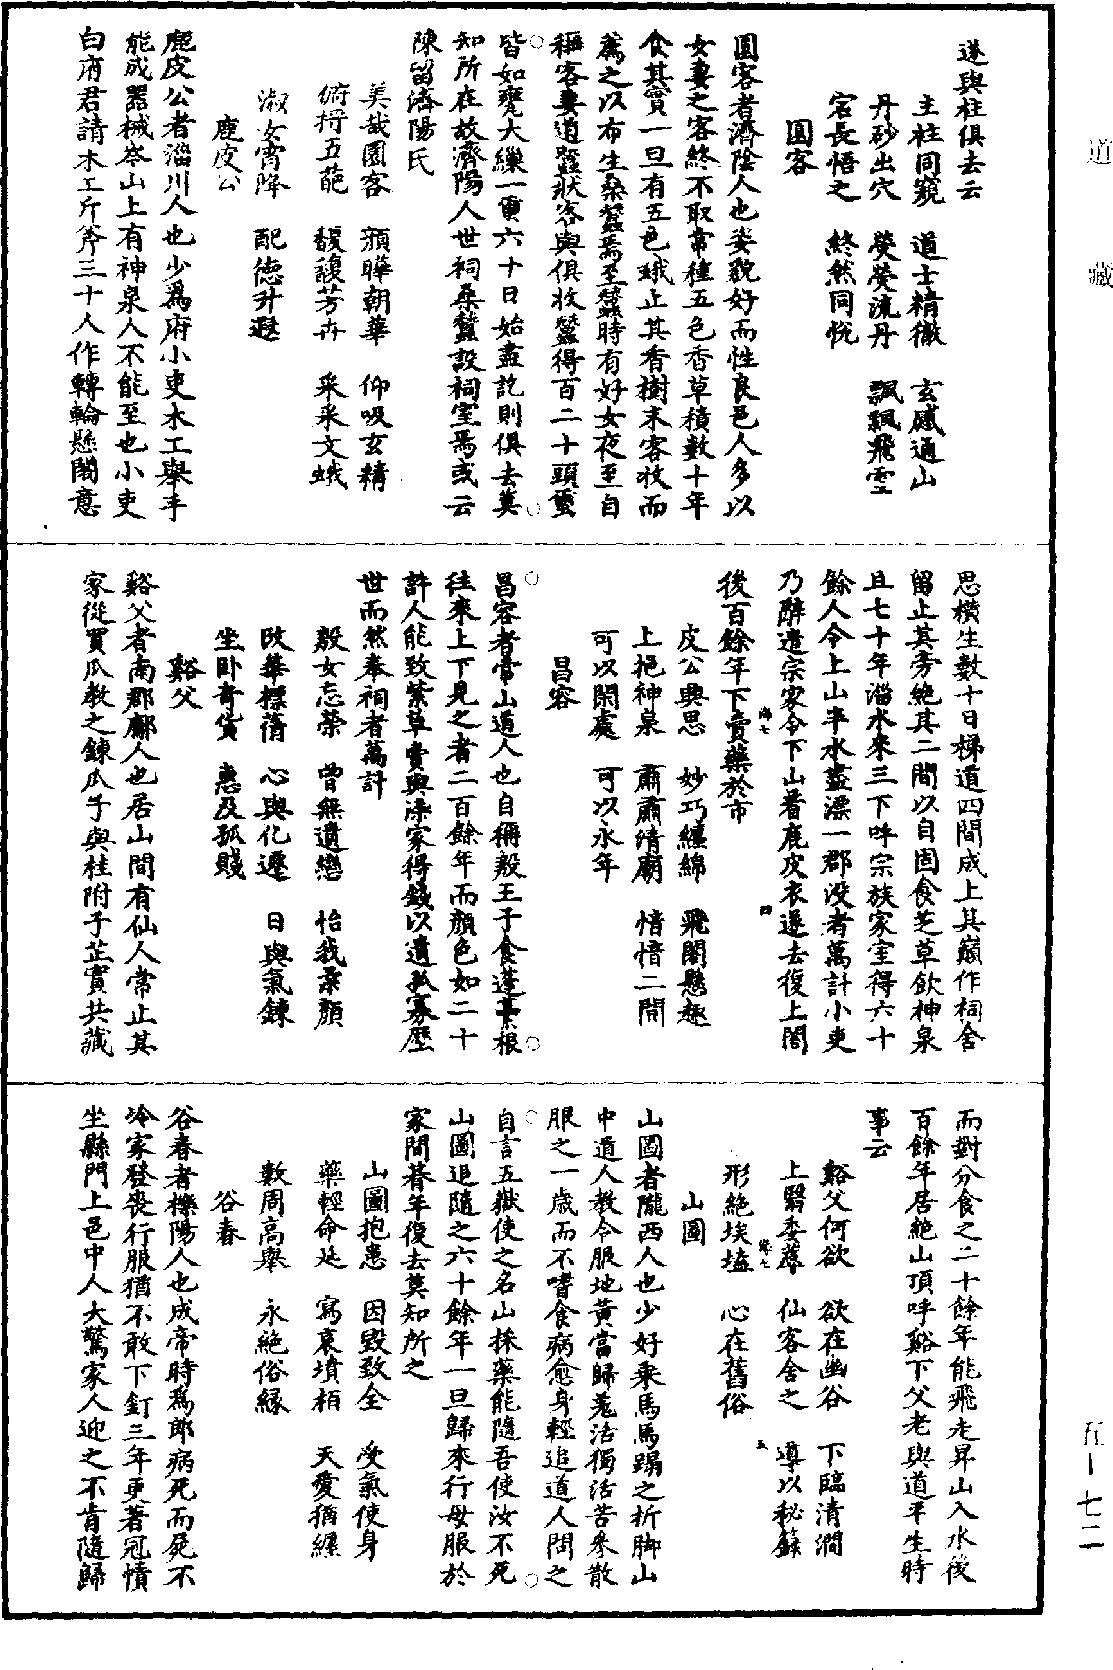 道藏
遂與柱俱去云
主柱同窺　道士精徹　玄感通山
丹砂出穴　熒熒流丹　飄飄飛雲
宕長悟之　終然同悅
園客
園客者濟陰人也姿貌好而性良邑人多以
女妻之客終不取常種五色香草積數十年
食其實一旦有五色蛾止其香樹末客收而
薦之以布生桑蠶焉至蠶時有好女夜至自
稱客妻道蠶狀客與俱收蠶得百二十頭蠒
皆如甕大繅一蠒六十日始盡訖則俱去莫
知所在故濟陽人世祠桑蠶設祠室焉或云
陳留濟陽氏
美哉園客　顏曄朝華　仰吸玄精
俯捋五葩　馥馥芳卉　采采文蛾
淑女宵降　配德升遐
鹿皮公
鹿皮公者淄川人也少為府小吏木工舉手
能成器械岑山上有神泉人不能至也小吏
白府君請木工斤斧三十人作轉輪懸閣意
思橫生數十日梯道四間成上其巔作祠舍
留止其旁絕其二間以自固食芝草飲神泉
且七十年淄水來三下呼宗族家室得六十
餘人令上山半水盡漂一郡没者萬計小吏
乃辭遣宗家令下山著鹿皮衣遂去復上閣
後百餘年下賣藥於市
皮公興思　妙巧纏綿　飛閣懸趣
上挹神泉　肅肅清廟　愔愔二間
可以閑處　可以永年
昌容
昌容者常山道人也自稱殷王子食蓬蔂根
往來上下見之者二百餘年而顏色如二十
許人能致紫草賣與染家得錢以遺孤寡歷
世而然奉祠者萬計
殷女忘榮　曾無遺戀　怡我柔顏
改華標蒨　心與化遷　日與氣鍊
坐卧奇貨　惠及孤賤
谿父
谿父者南郡鄘人也居山間有仙人常止其
家從買瓜教之鍊瓜子與桂附子芷實共藏
而對分食之二十餘年能飛走昇山入水後
百餘年居絕山頂呼谿下父老與道平生時
事云
谿父何欲　欲在幽谷　下臨清澗
上翳委蓽　仙客舍之　導以秘籙
形絕埃𡏖　心在舊俗
山圖
山圖者隴西人也少好乘馬馬蹋之折脚山
中道人教令服地黄當歸羌活獨活苦參散
服之一歲而不嗜食病愈身輕追道人問之
自言五嶽使之名山採藥能隨吾使汝不死
山圖追隨之六十餘年一旦歸來行母服於
家間朞年復去莫知所之
山圖抱患　因毀致全　受氣使身
藥輕命延　寫哀墳栢　天愛猶纏
數周高舉　永絕俗緣
谷春
谷春者櫟陽人也成帝時為郎病死而屍不
冷家發喪行服猶不敢下釘三年更著冠幘
坐縣門上邑中人大驚家人迎之不肯隨歸
五-七二